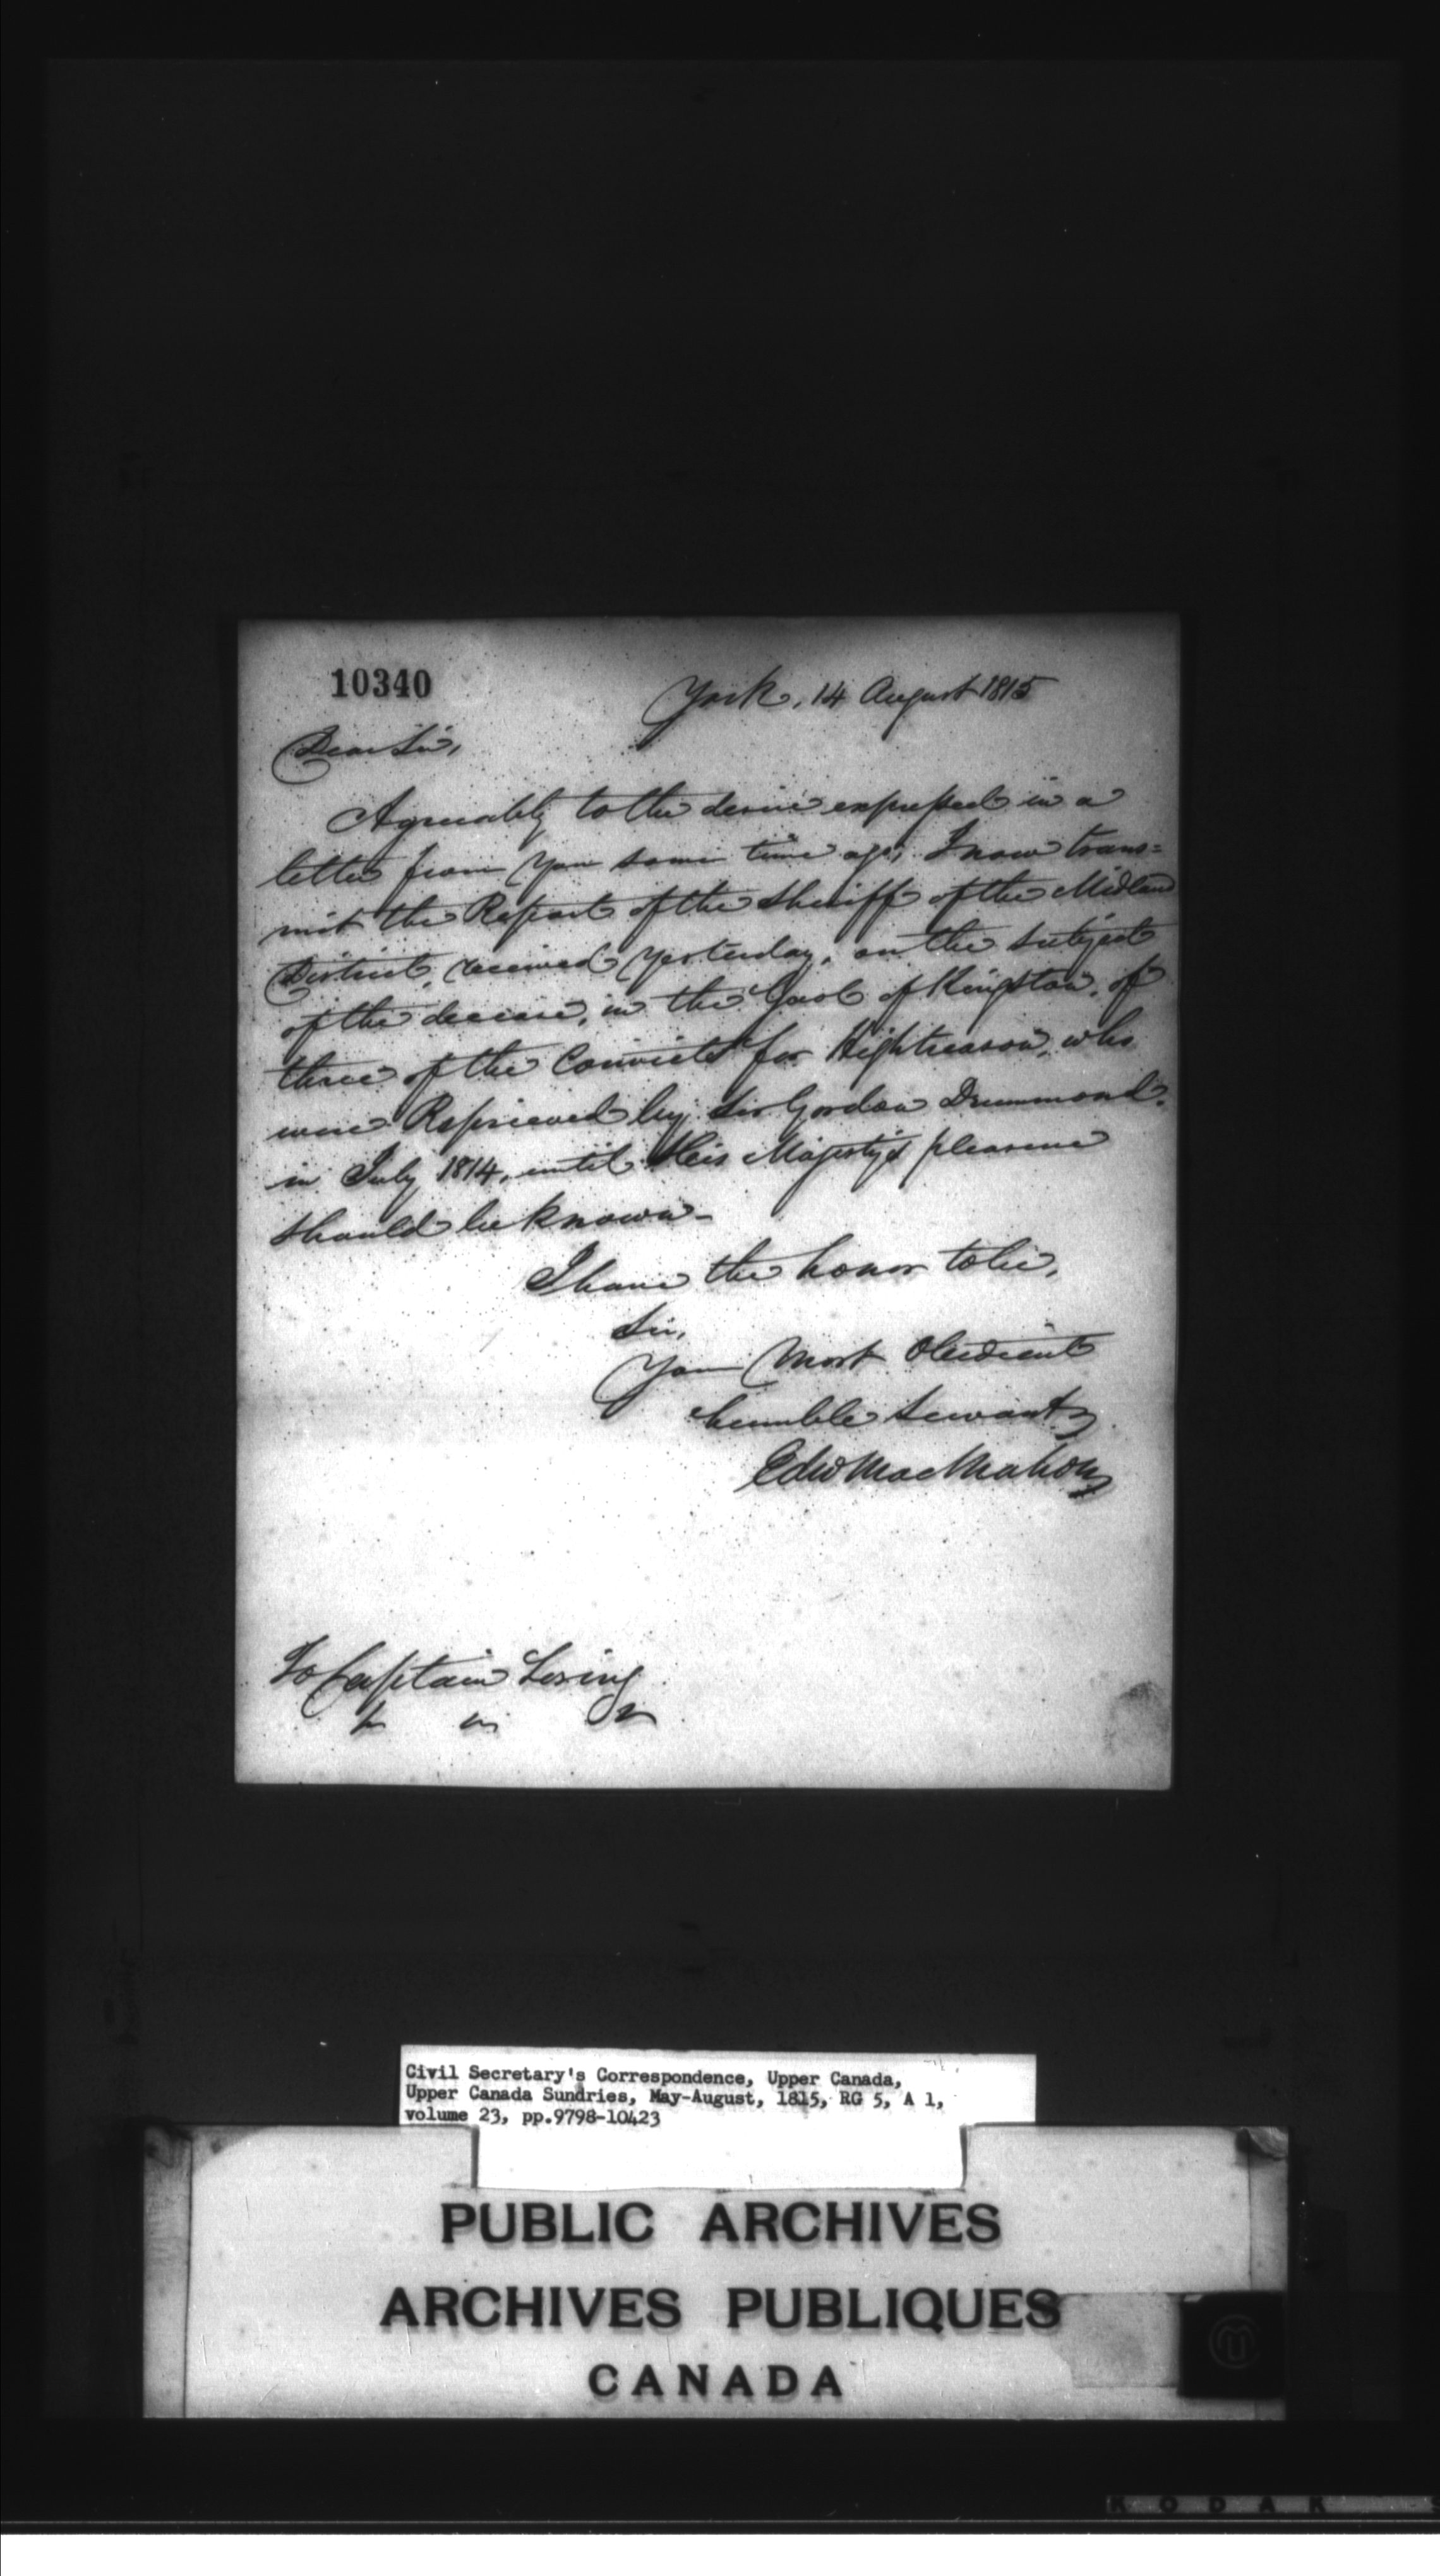 10340
York, 14 August 1815
Dear Sir,
Agreeably to the desire expressed in a
letter from you some time ago, I now trans=
mit the Report of the Sheriff of the Midland
District, received yesterday, on the subject
of the decease, in the Gaol of Kingston, of
three of the Convicts for Hightreason, who
were Reprieved by Sir Gordon Drummond.
in July 1814, until His Majesty's pleasure
should be known -
I have the honor to be,
Sir,
Your Most Obedient
humble Servant
Edw MacMahon
To Captain Loring
Civil Secretary's Correspondence, Upper Canada,
Upper Canada Sundries, May-August, 1815, RG 5, A 1,
volume 23, pp.9798-10423
PUBLIC ARCHIVES
ARCHIVES PUBLIQUES
CANADA
KODAK